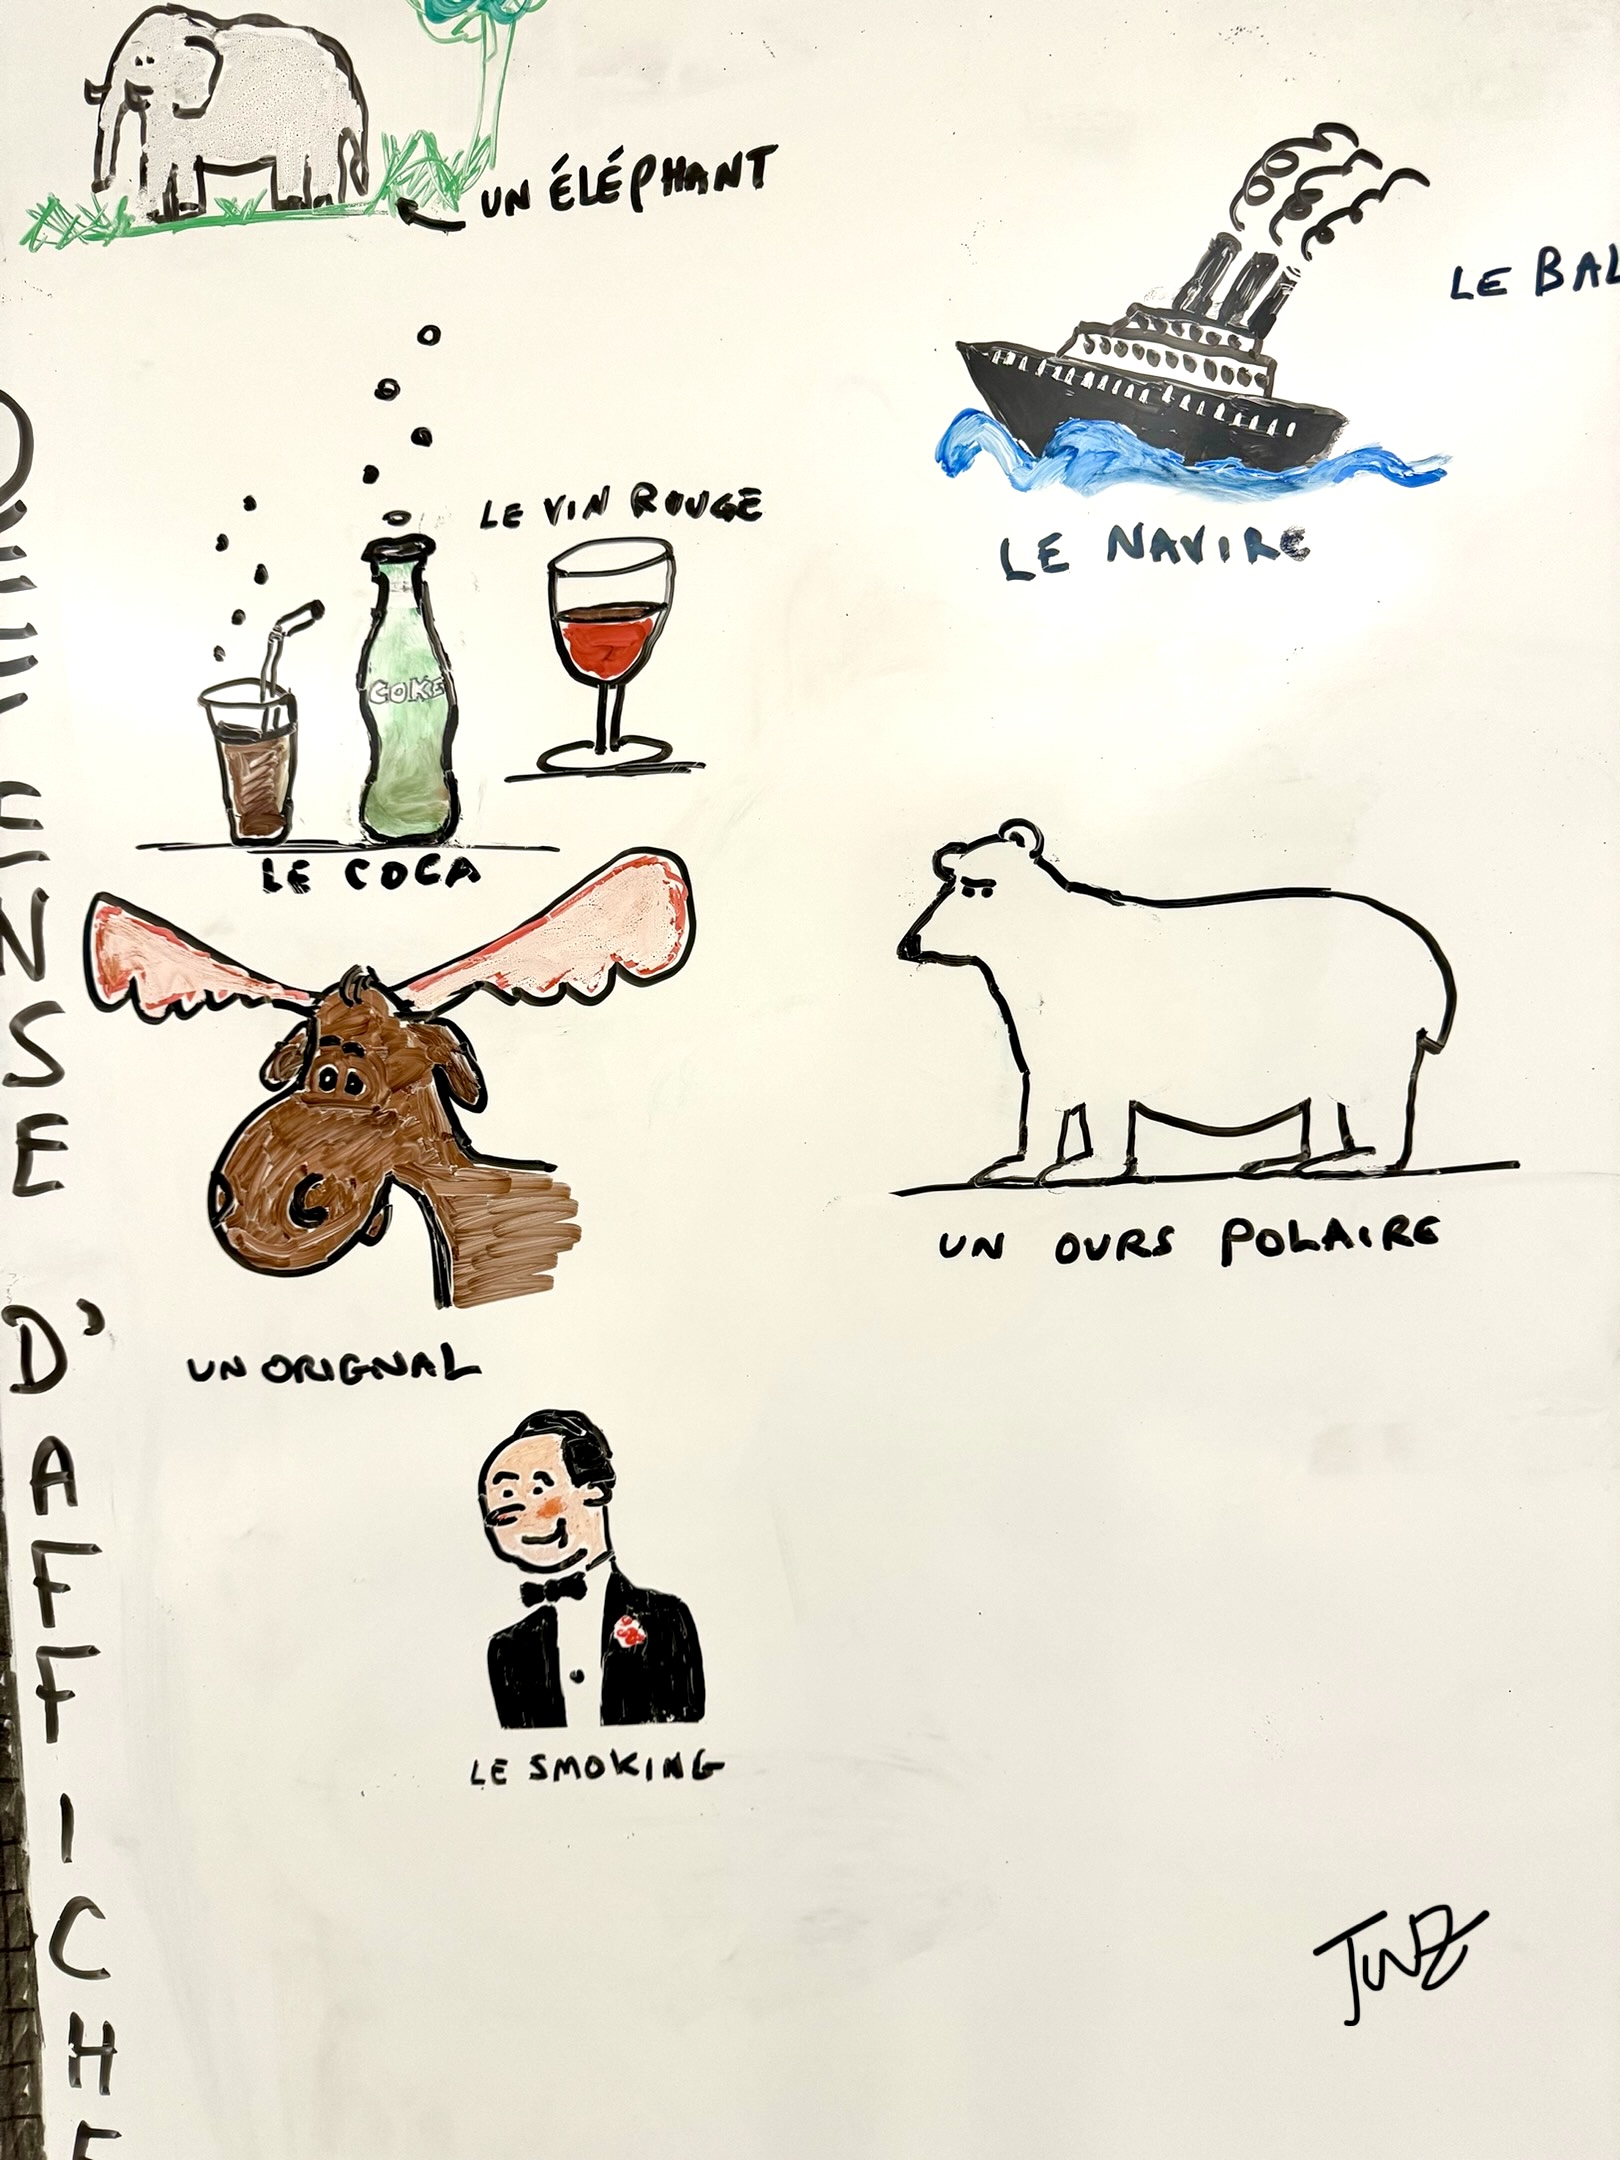 UN ÉLÉPHANT
LE BAL
LE VIN ROUGE
LE NAVIRE
COKE
LE COCA
UN OURS POLAIRE
UN ORIGNAL
LE SMOKING
DÉFENSE
D'AFFICHE